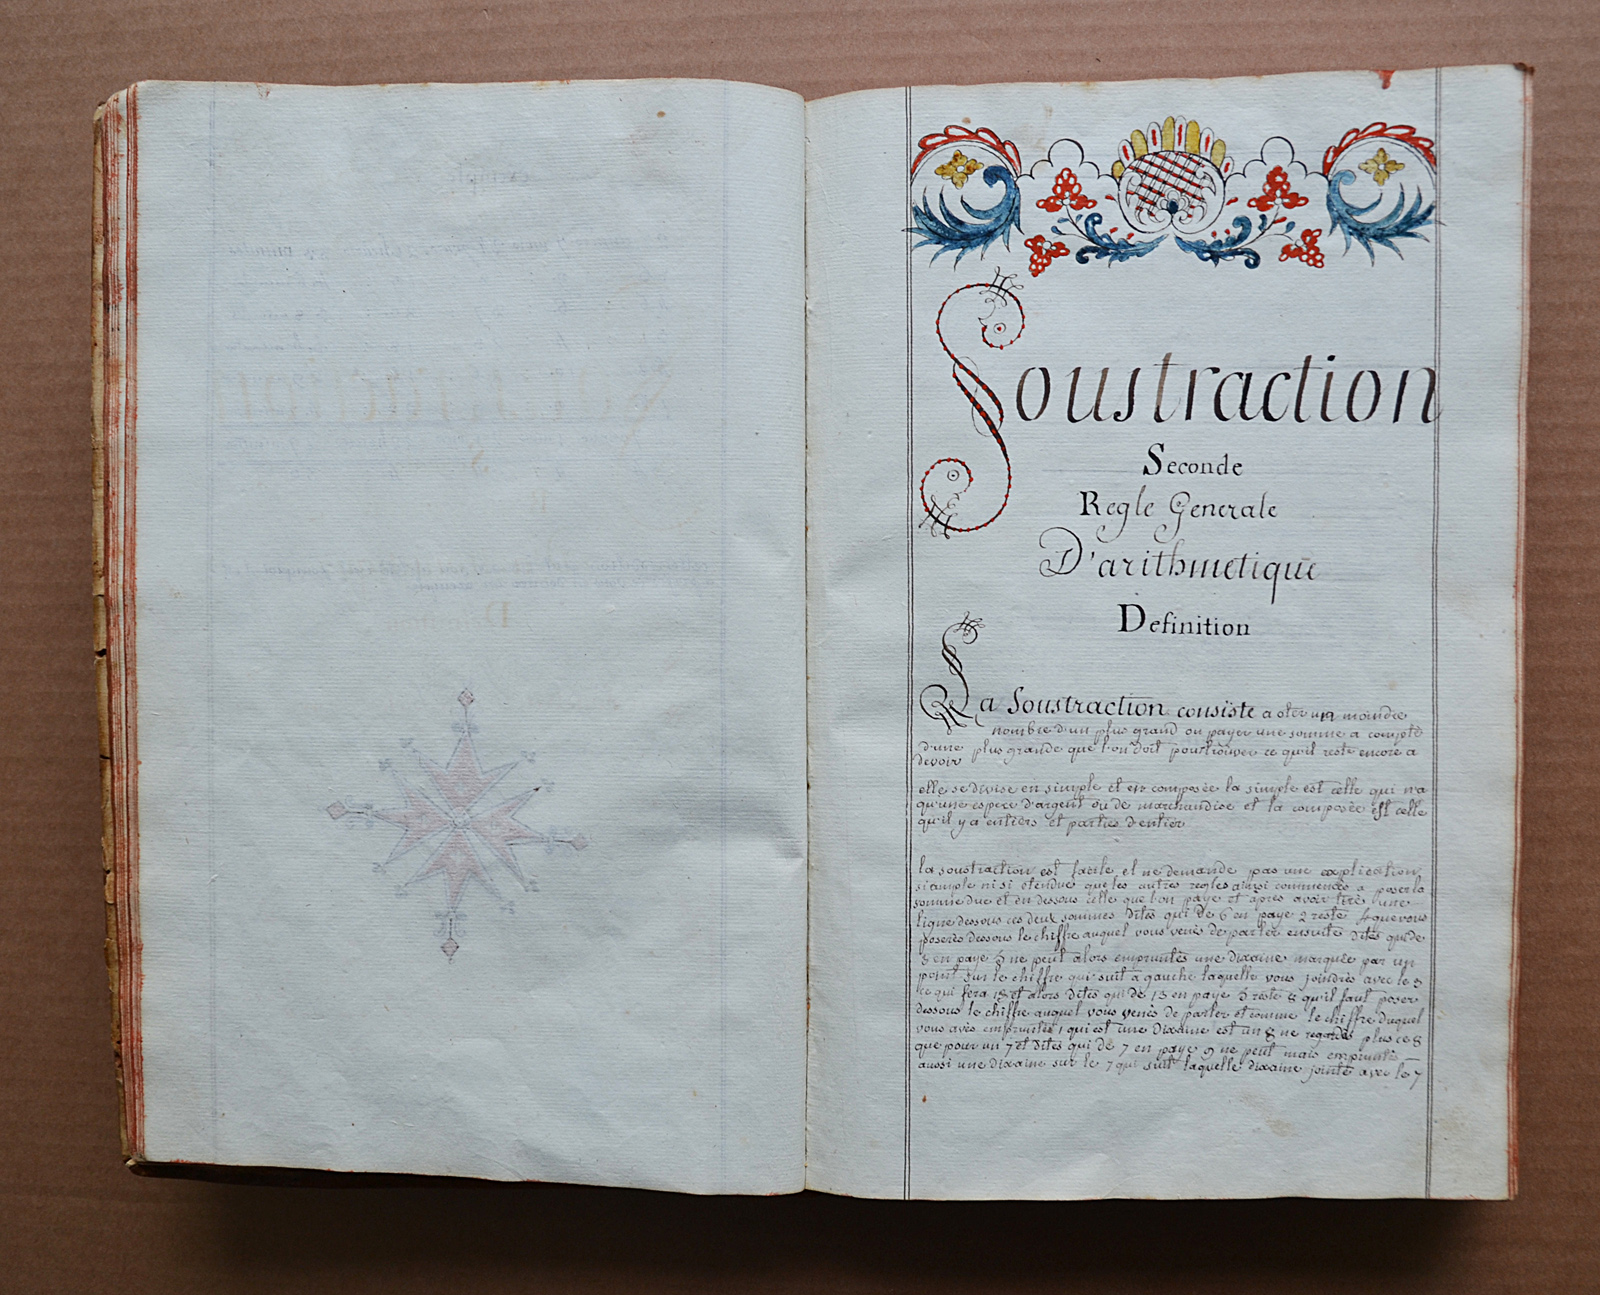 Soustraction
Seconde
Regle Generale
D'arithmetique
Definition
La Soustraction consiste a oter un moindre
nombre d'un plus grand ou payer une somme a compte
d'une plus grande que l'on doit pour trouver ce qu'il reste encore a
devoir
elle se divise en simple et en composée la simple est celle qui n'a
qu'une espece d'argent ou de marchandise et la composée est celle
qu'il y a entiers et parties d'entier
la soustraction est facile et ne demande pas une explication
si ample ni si etendue que les autres regles ainsi commencés a poser la
somme due et en dessous celle que l'on paye et apres avoir tiré une
ligne dessous ces deux sommes dites qui de 6 en paye 2 reste 4 que vous
poserés dessous le chiffre auquel vous venés de parler ensuite dites qui de
3 en paye 5 ne peut alors empruntés une dixaine marquée par un
point sur le chiffre qui suit a gauche laquelle vous joindrés avec le 3
ce qui fera 13 et alors dites qui de 13 en paye 5 reste 8 qu'il faut poser
dessous le chiffre auquel vous venés de parler et comme le chiffre duquel
vous avés emprunté 1 qui est une dixaine est un 8 ne regardés plus ce 8
que pour un 7 et dites qui de 7 en paye 9 ne peut mais empruntés
aussi une dixaine sur le 7 qui suit laquelle dixaine jointe avec le 7